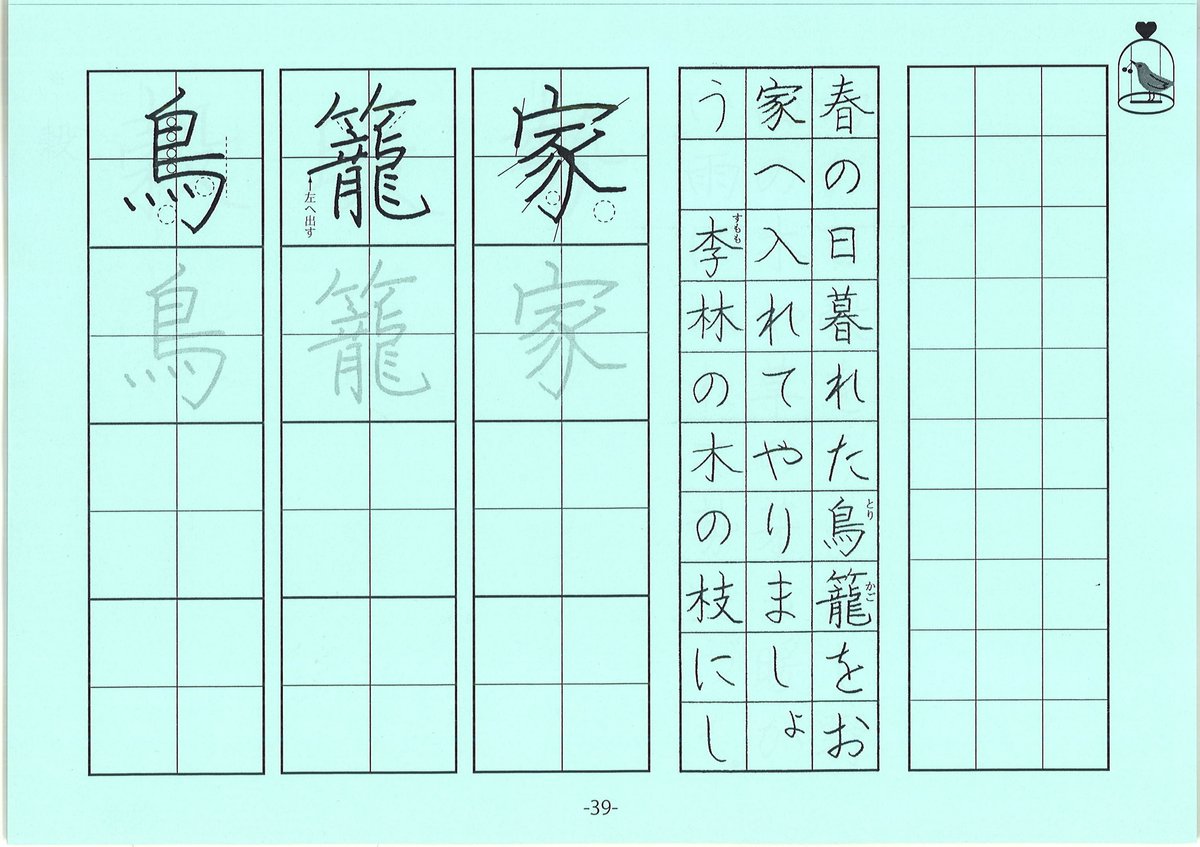 春の日暮れた鳥籠をお
家へ入れてやりましょ
う 李林の木の枝にし
とり
かご
すもも
家
家
籠
左へ出す
籠
鳥
鳥
-39-